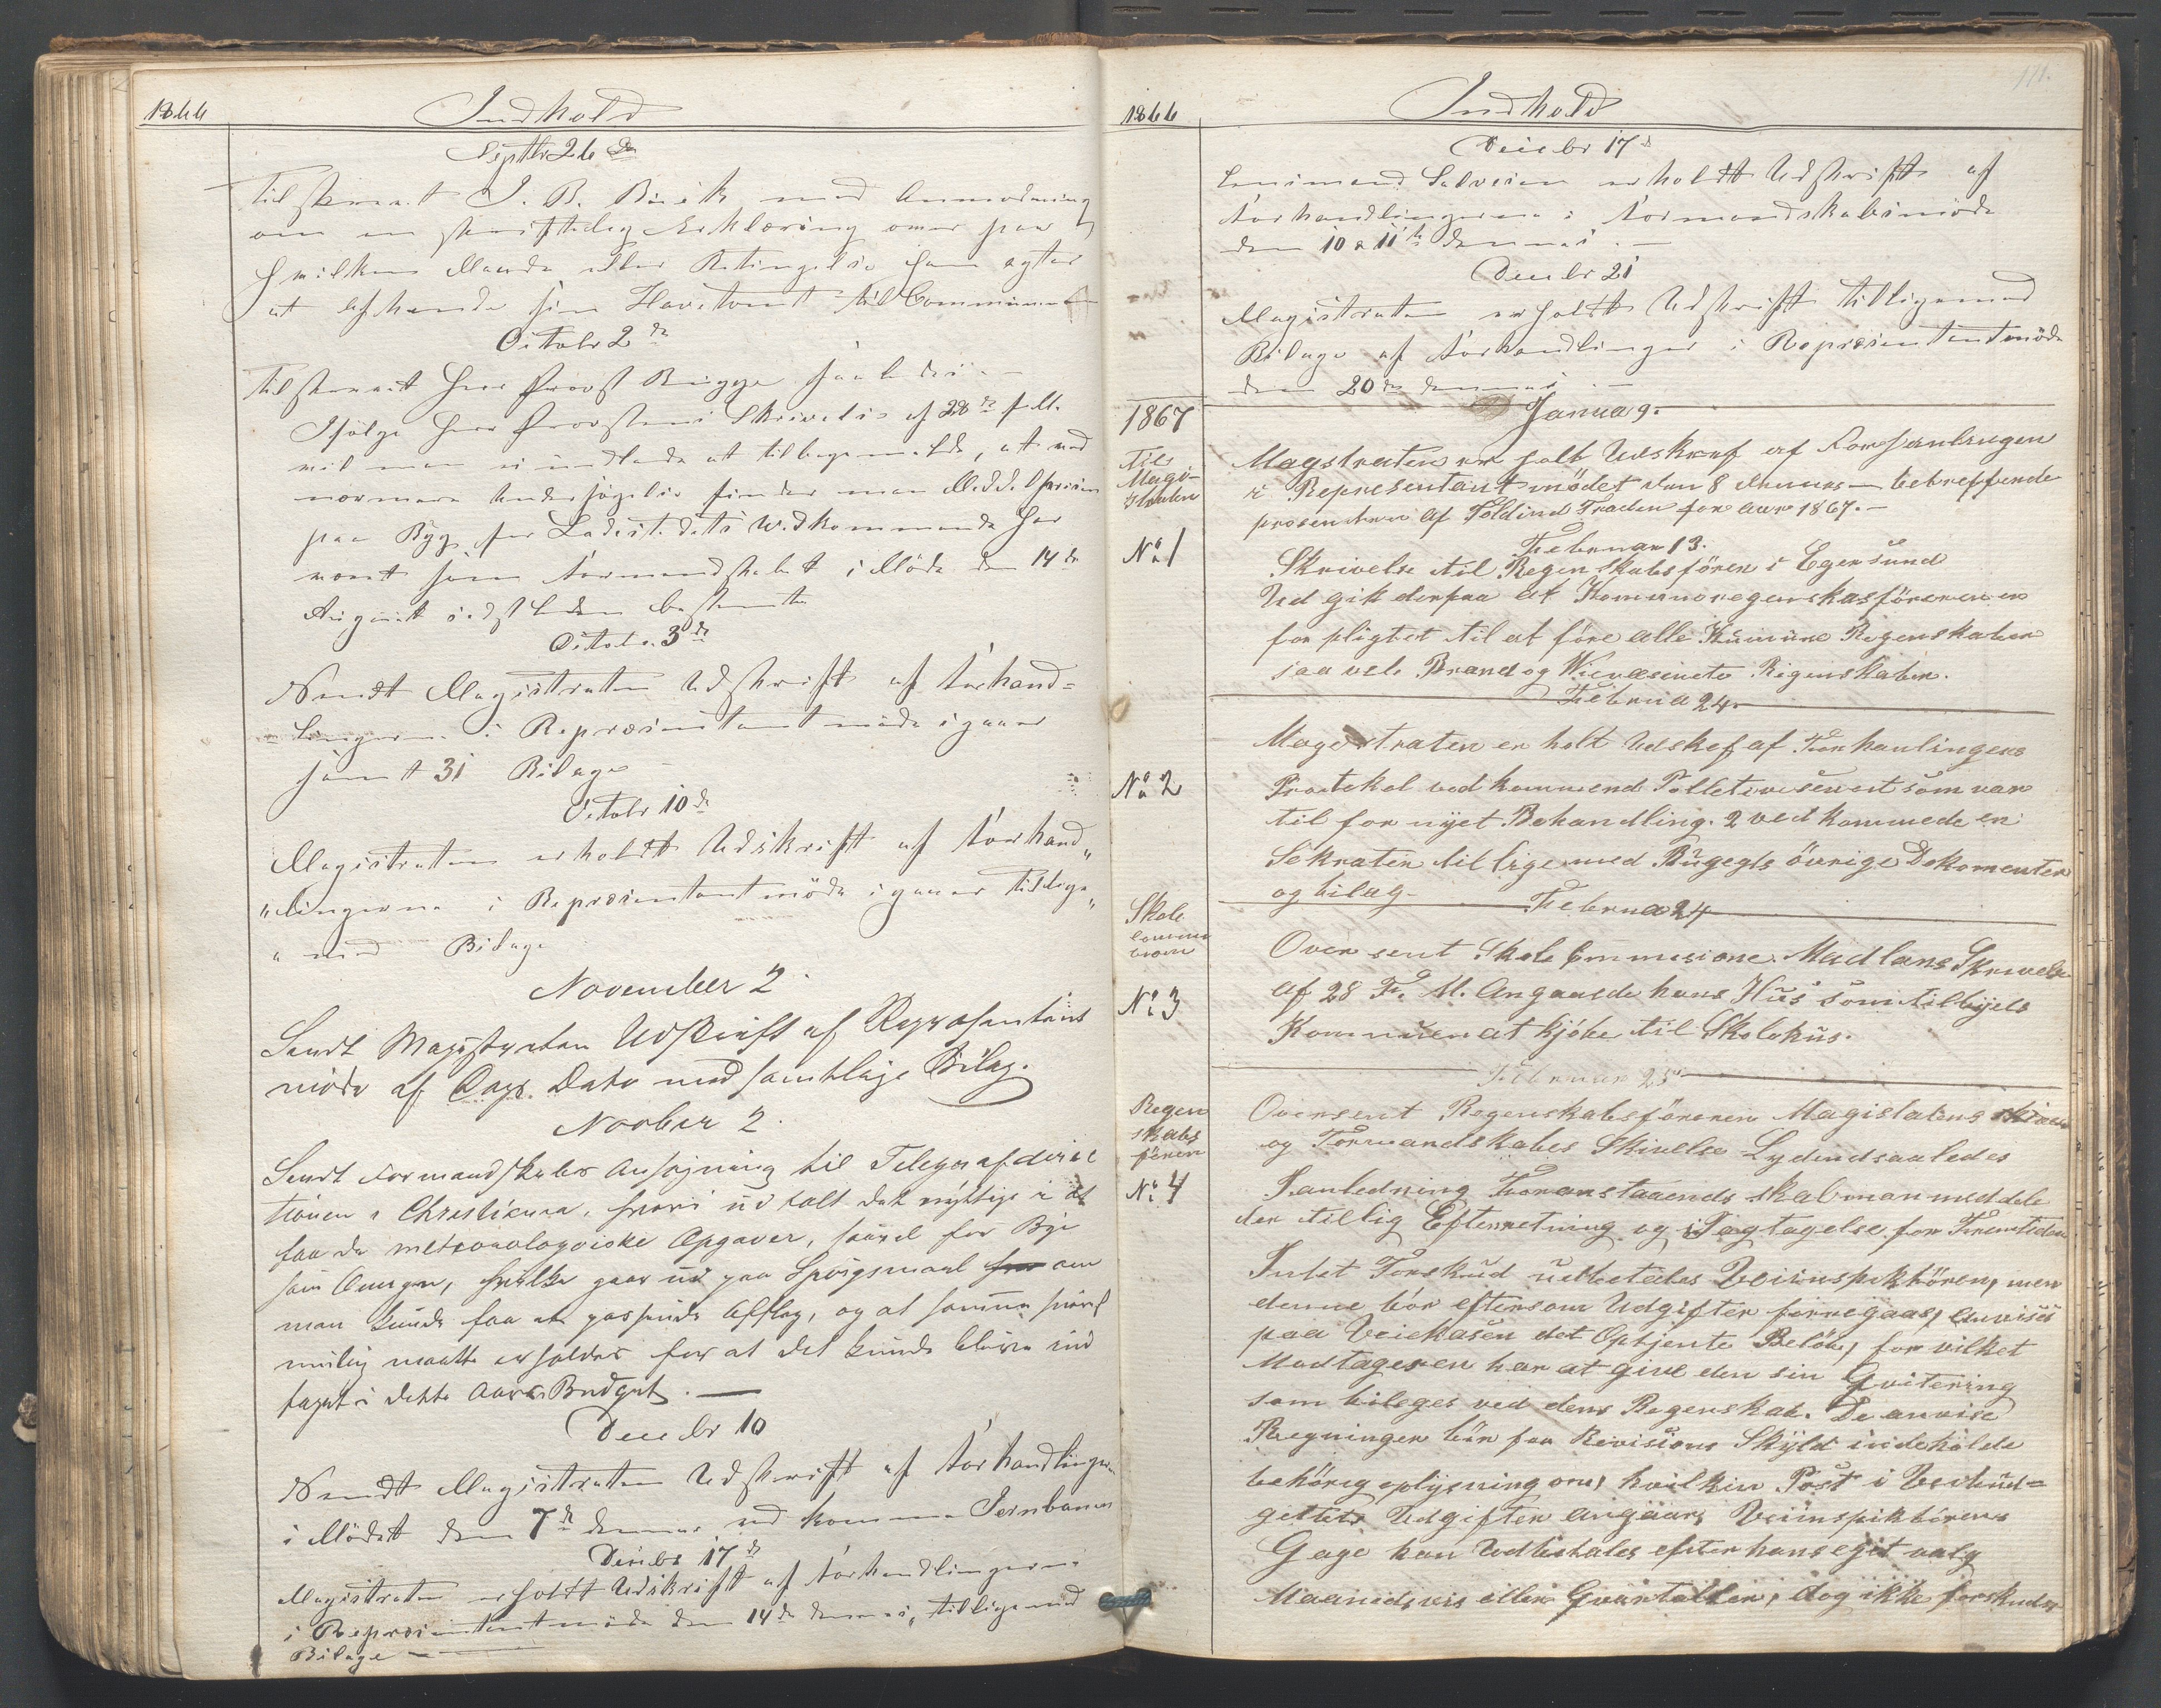 1866 Indhold
Septbr 26de
Tilskrevet J. B. med Anmodning
om en skriftelig Erklæring over paa
hvilken Maade eller Betingelse han agter
at afhænde sin Havetomt til Communen
Octobr 2de
Tilskrevet Herr Provst Brügge saaledes. –
Ifölge Herr Provstens Skrivelse af 28de f. M.
vil man ei undlade at tilbagemelde, at ved
nærmere Undersögelse finder man
paa Byg for Ladestedets Vedkommende har
været som Formandskabet i Möde den 14de
August sidstleden bestemte
Octobr. 3de
Sendt Magistraten Udskrift af Forhand=
=lingerne i Repræsentantmöde igaaer
samt 31 Bilage
Octobr 10de
Magistraten erholdt Udskrift af Forhand„
„lingerne i Repræsentantmöde igaaer tillige„
„med Bilage
November 2.
Sendt Magistraten Udskrift af Repræsentants
möde af Dags Dato med samtlige Bilag.
Novbr 2.
Sendt Formandskabes Ansögning til Telegrafdirec
tionen i Christiania, hvori
faa de meteorologiske Opgaver, saavel for Bye
som Omegn, hvilke gaar ud paa Spörgsmaal om
man kunde faa et passende Afslag, og at samme snarest
mulig maatte erholdes for at det kunde blive ind
taget i dette Aars Budget. —
Decebr 10
Sendt Magistraten Udskrift af Forhandlingerne
i Mödet den 7de dennes ved komme Jernbanen
Decebr 17de
Magistraten erholdt Udskrift af Forhandlingerne
i Repræsentantmöde den 14de dennes, tilligemed
Bilage
1866 Indhold
Decebr 17d
Lensmand Salvesen erholdt Udskrift af
Forhandlingerne i Formandskabsmöde
den 10 & 11te dennes. —
Decebr 21
Magistraten erholdt Udskrift tilligemed
Bilage af Forhandlinger i Repræsentantmöde
den 20de dennes. —
1867 Janua 9.
Til Magi-
straten
Magstraten er holt Udskref af Forhanlingen
i Representantmödet den 8 dennes – betreffende
prosenten af Toldind Traden for aar 1867. –
Februar 13.
No 1
Skrivelse til Regenskabsfören i Egersund
Ud gik derpaa at Komuneregenskasföreren er
for pligtet til at före alle Kumune Regenskaber
saa vel Brand og Regenskaber.
Februa 24.
No 2
Magestraten er holt Udskef af Forhanlingens
Protekel ved kommend som var
til for nyet Behandling. 2 ved kommede en
Sekraten tillige med Bügegts övrige Dokomenter
og bilag.
Februa 24
Skole
commi
sion
No 3
Over sent Skole Commesione Madlans Skrivelse
af 28 F. M. Angaaede hans Hus som tilbyjels
Kommunen at kjöbe til Skolehus.
Februar 25
Regen
skabs
fören
No 4
Oversent Regenskabsföreren Magistatens skriv
og Formandskabes Skivelse Lydendsaaledes
I anledning Foranstaaends skal man meddele
der tillig Efterretning og iTagtagelse for Fremtiden
Intet Forskud udbetales Veiinspektören, men
denne bör eftersom Udgifter forregaas, anvises
paa Veiekasen det Optjente Belöb, for vilket
Modtageren har at give den sin Qvitering
som bileges ved dens Regenskab. De anvise
Regninger bör for Revisions Skyld indeholde
behörig oplysning om, hvilkin Post i Veibud=
gettets Udgifter angaar, Veiinspiktörens
Gage kan Udbetales efter hans eget valg
Maanedsvis eller Qvartallen, dog ikke forskuds